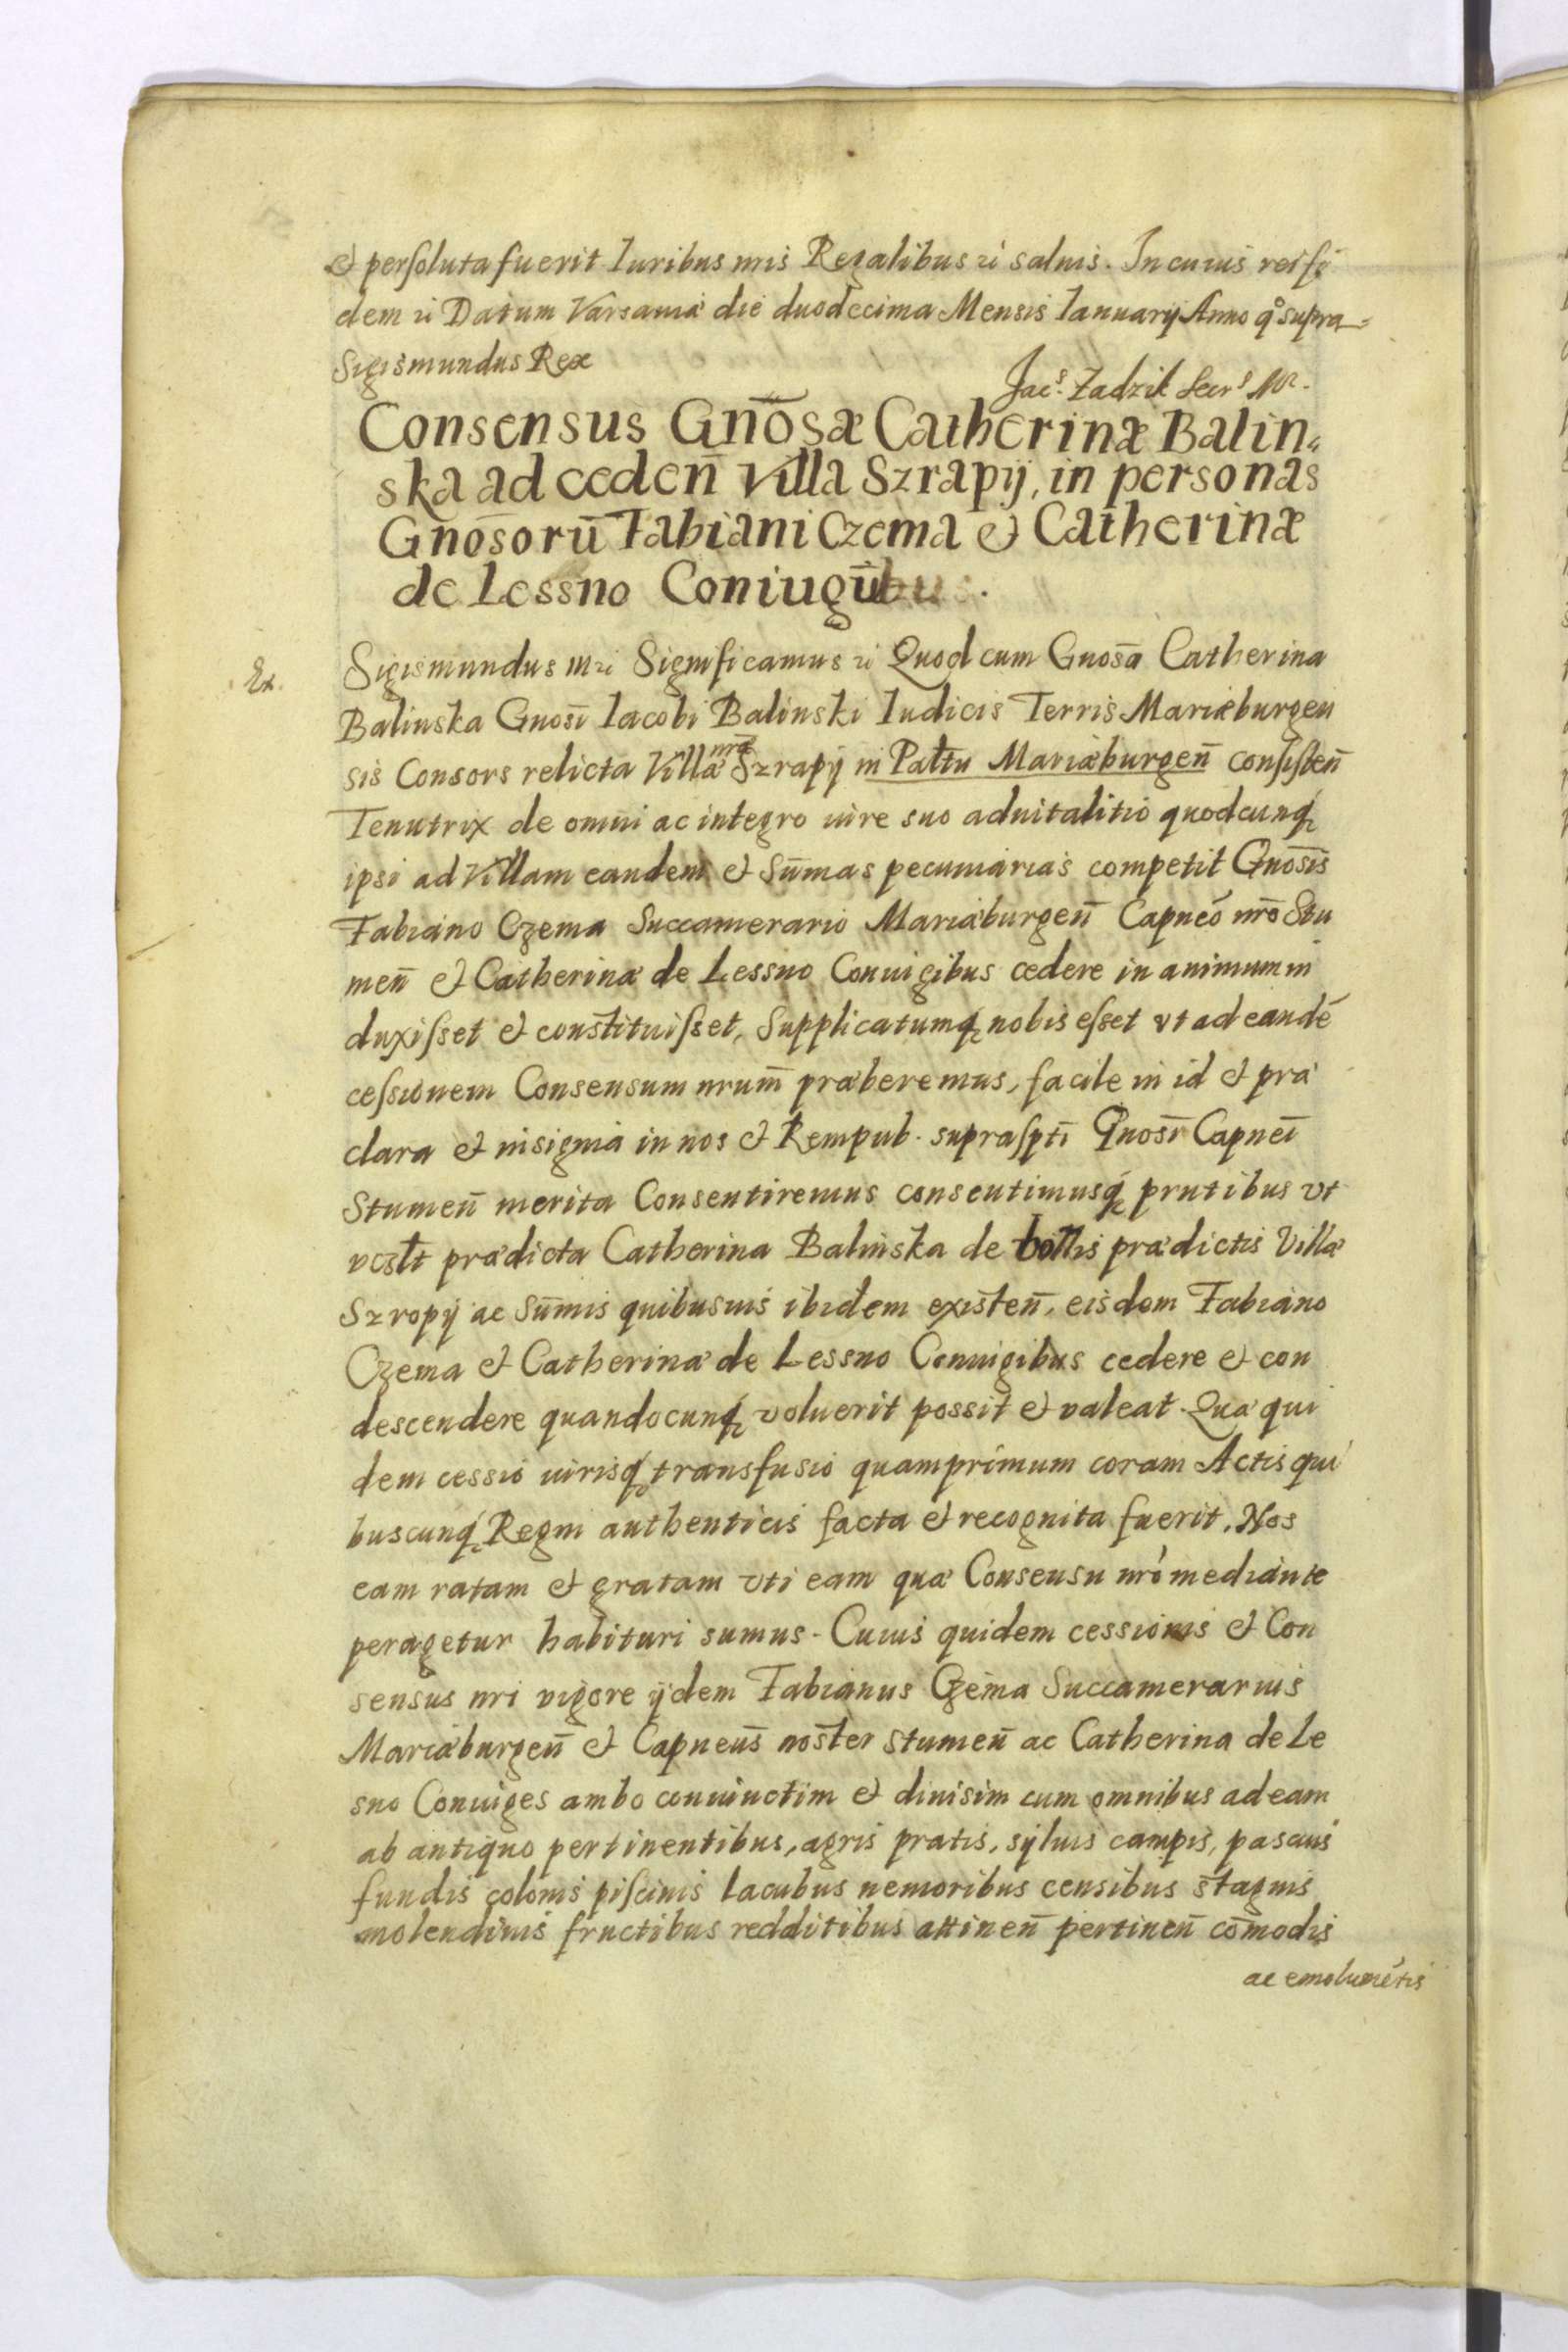 et persoluta fuerit Iuribus nris Regalibus ꝛc saluis. In cuius rei fi
dem ꝛc Datum Varsauiæ die duodecima Mensis Ianuarij Anno qͦ supra
Sigismundus Rex
Jacˢ. Zadzik Secrˢ Mr.
Consensus Gnōsæ Catherinæ Balin
ska ad ceden̄ Villa Szrapij, in personas
Gnōsorū Fabiani Czema et Catherinæ
de Lessno Coniugūbus.
Ex.
Sigismundus ꝛc Significamus ꝛc Quod cum Gnosā Catherina
Balinska Gnosī Iacobi Balinski Iudicis Terris Mariæburgen
sis Consors relicta Villæ nræ Szrapij in Pałtu Mariæburgen̄ consisten̄
Tenutrix de omni ac integro iure suo aduitalitio quodcunq́
ipsi ad Villam eandem et Sūmas pecuniarias competit Gnosīs
Fabiano Czema Succamerario Mariæburgen̄ Capneó nrō Stu
men̄ et Catherinæ de Lessno Coniugibus cedere in animum in
duxisset et constituisset, Supplicatumq́ nobis esset vt ad eandé
cessionem Consensum nrum̄ præberemus, facile in id et præ
clara et insignia in nos et Rempub. supraspti̅ Gnosī Capnei̅
Stumen̄ merita Consentiremus consentimusq́ pr̄ntibus vt
præedicta Catherina Balinska de bonis prædictis Villæ
Szropij ac Sūmis quibusuis ibidem existen̄, eisdem Fabiano
Czema et Catherinæ de Lessno Coniugibus cedere et con
descendere quandocunq́ voluerit possit et valeat. Quæ qui
dem cessio iurisq́ transfusio quamprimum coram Actis qui
buscunq́ Regni authenticis facta et recognita fuerit. Nos
eam ratam et gratam vti eam quæ Consensu nrō mediante
peragetur habituri sumus. Cuius quidem cessionis et Con
sensus nri vigore ijdem Fabianus Czema Succamerarius
Mariæburgen̄ et Capneus̄ noster Stumen̄ ac Catherina de Le
sno Coniuges ambo coniunctim et diuisim cum omnibus ad eam
ab antiquo pertinentibus, agris pratis, syluis campis, pascuis
fundis colonis piscinis lacubus nemoribus censibus stagnis
molendinis fructibus redditibus attinen̄ pertinen̄ cōmodis
ac emolumétis